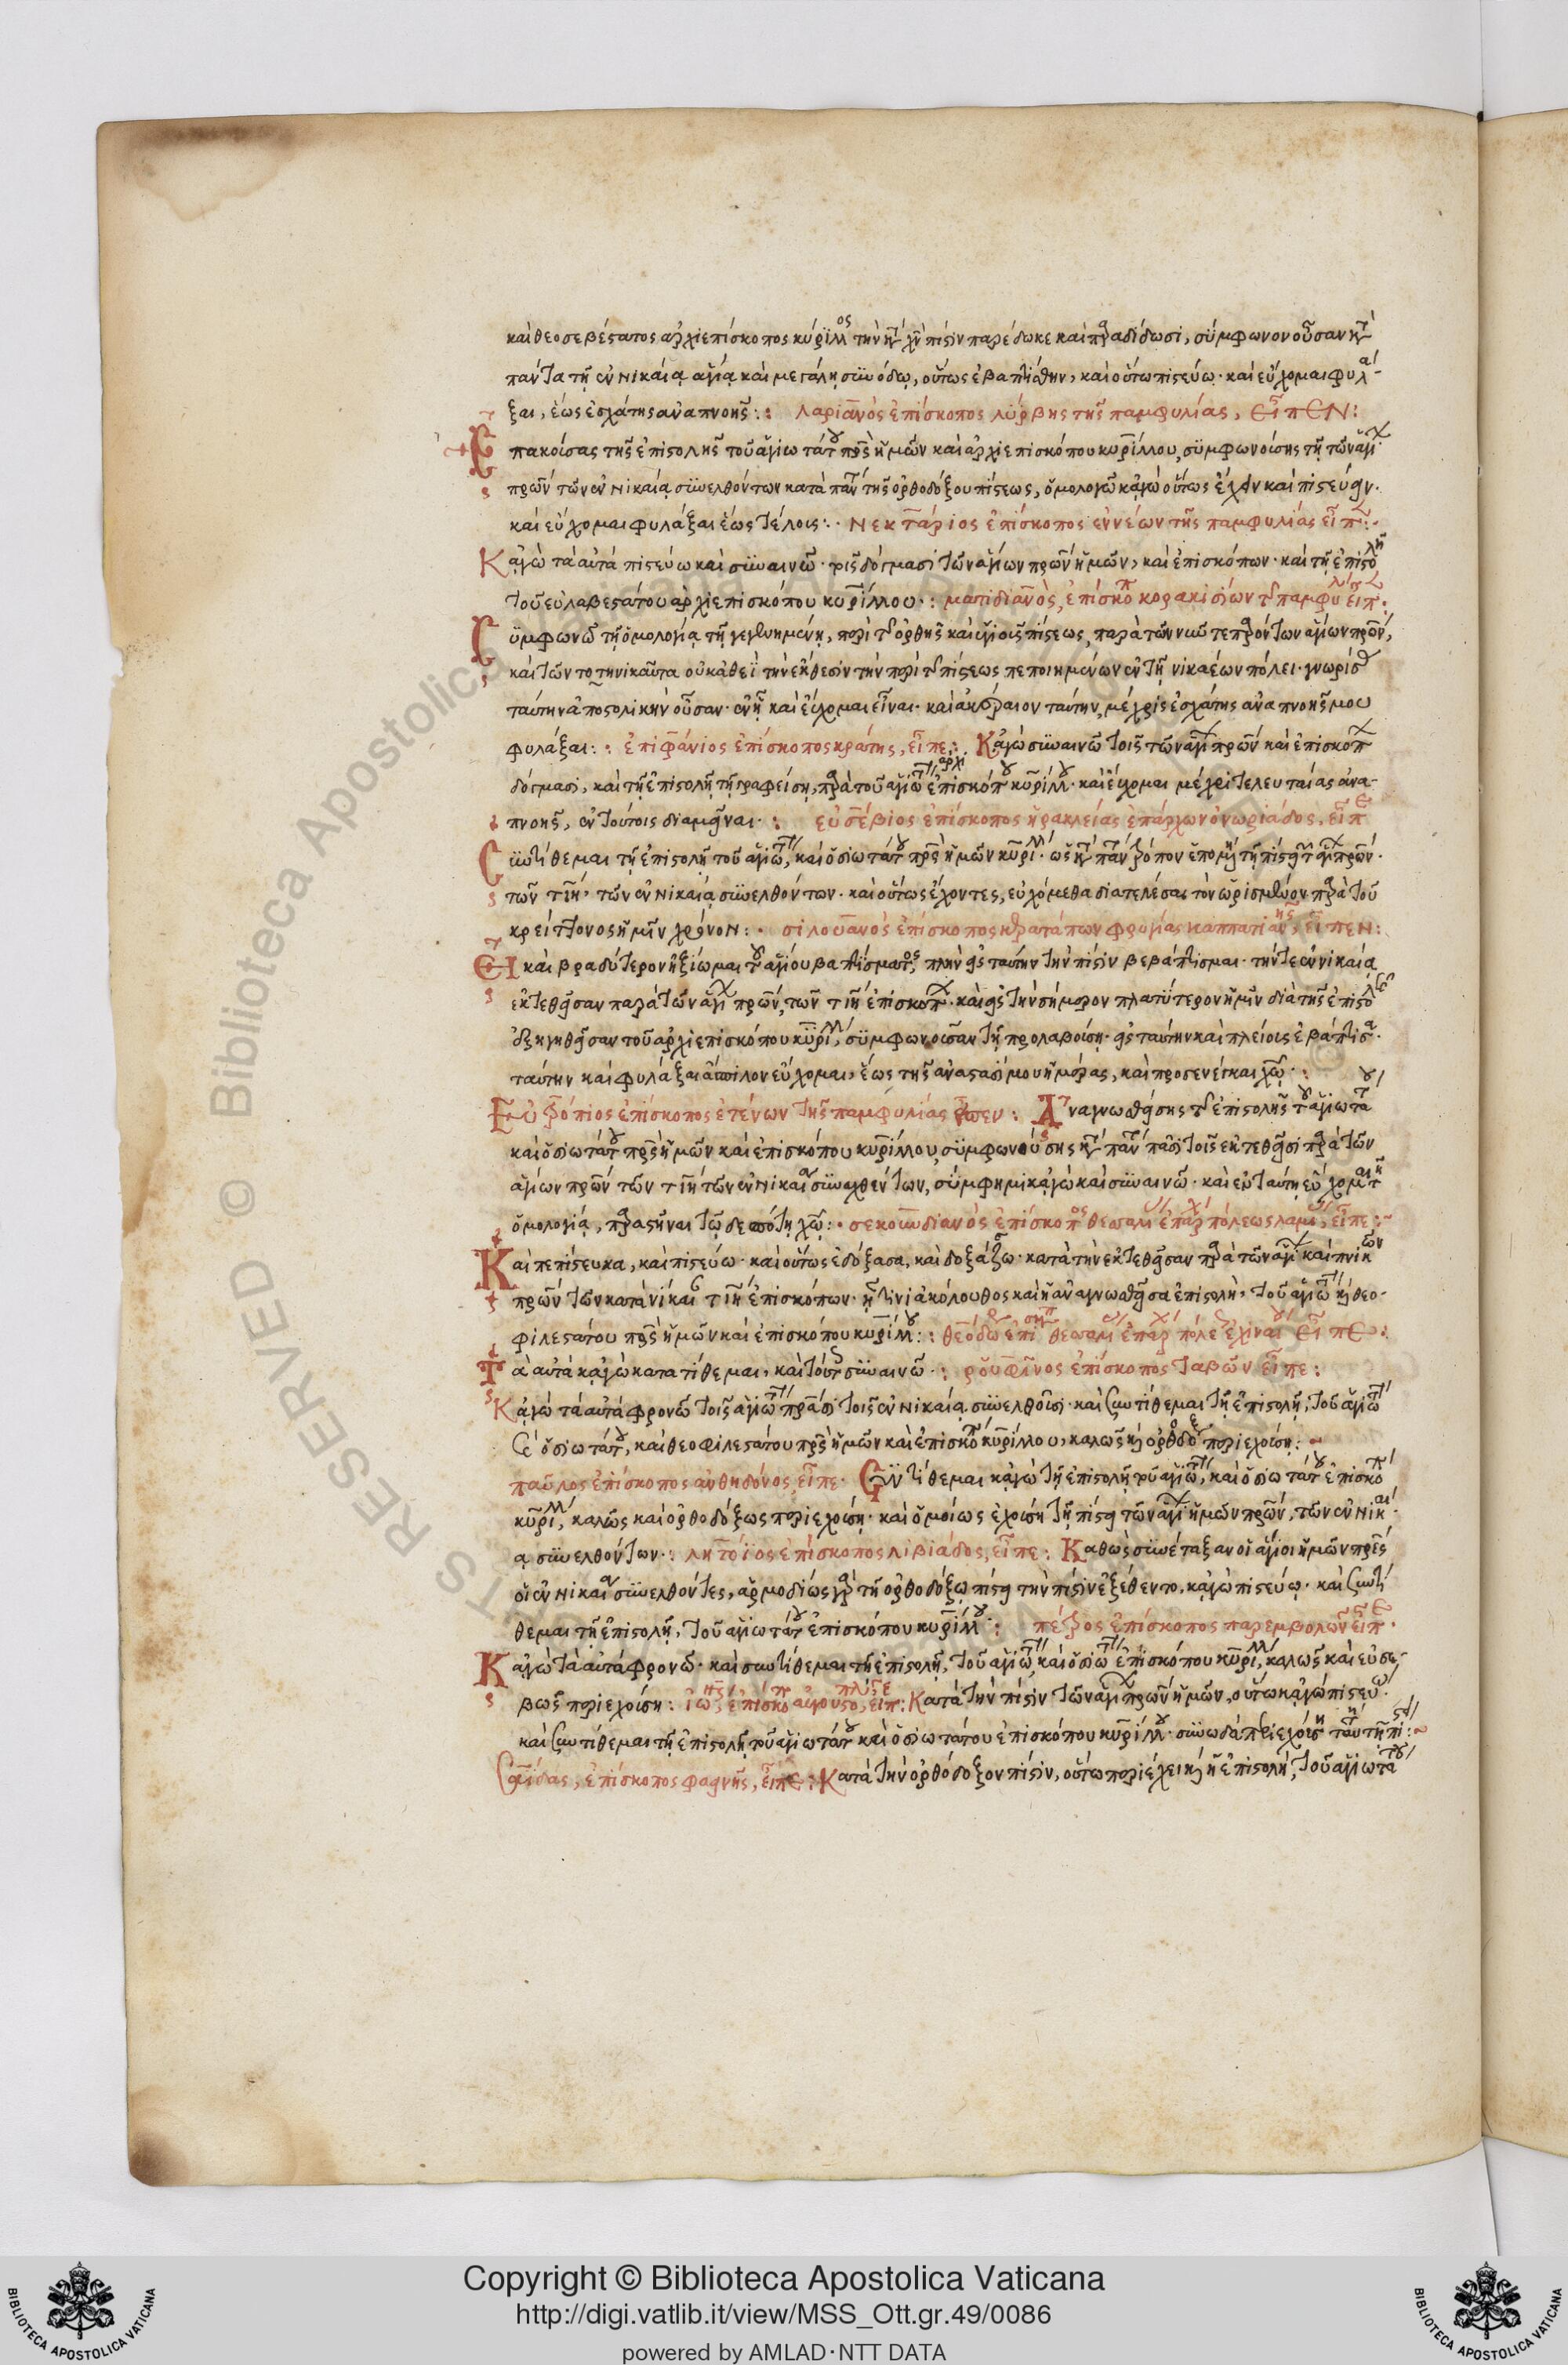 καὶ θεοσεβέστατος ἀρχιεπίσκοπος κύριλλος τὴν πίστιν παρέδωκε καὶ παραδίδωσι, σύμφωνον οὖσαν κατὰ
πάντα τῆ ἐν Νικαία ἁγία καὶ μεγάλη συνόδω, οὕτως ἐβαπτίσθην, καὶ οὕτω πιστεύω· καὶ εὔχομαι φυλά-
ξαι, ἕως ἐσχάτης ἀναπνοῆς: λαριανὸς ἐπίσκοπος λύρβης τῆς παμφυλίας, εἶπεν:
πακούσας τῆς ἐπιστολῆς τοῦ ἁγιωτάτου πρς ἡμῶν καὶ ἀρχιεπισκόπου κυρίλλου, συμφωνούσης τῆ τῶν ἁγίων
πρων τῶν ἐν Νικαία συνελθόντων κατὰ πάντα τῆς ὀρθοδόξου πίστεως, ὁμολογῶ κἀγὼ οὕτως ἔχειν καὶ πιστεύειν·
καὶ εὔχομαι φυλάξαι ἕως τέλους: Νεκτάριος ἐπίσκοπος ἐννέων τῆς παμφυλίας εἶπε:
Κἀγὼ τὰ αὐτὰ πιστεύω καὶ συναινῶ τοῖς δόγμασι τῶν ἁγίων πρων ἡμῶν, καὶ ἐπισκόπων· καὶ τῆ ἐπιστολῆ
τοῦ εὐλαβεστάτου ἀρχιεπισκόπου κυρίλλου: ματιδιανὸς, ἐπίσκοπος κορακισίων τῆς παμφυλίας εἶπε:
Συμφωνῶ τῆ ὁμολογία τῆ γεγενημένη, περὶ τῆς ὀρθῆς καὶ ὑγιοῦς πίστεως, παρὰ τῶν νῦν τε παρόντων ἁγίων πρων,
καὶ τῶν τὸ τηνικαῦτα οὐκ ἀθεεὶ τὴν ἔκθεσιν τὴν περὶ τῆς πίστεως πεποιημένων ἐν τῆ νικαέων πόλει· γνωρίσας
ταύτην ἀποστολικὴν οὖσαν· ἐν ἧ καὶ εὔχομαι εἶναι· καὶ ἀκέραιον ταύτην, μέχρις ἐσχάτης ἀναπνοῆς μου
φυλάξαι: ἐπιφάνιος ἐπίσκοπος κράτης, εἶπε: Κἀγὼ συναινῶ τοῖς τῶν ἁγίων πρων καὶ ἐπισκόπων
δόγμασι, καὶ τῆ ἐπιστολῆ τῆ γραφείση, παρὰ τοῦ ἁγιωτάτου ἀρχιεπισκόπου κυρίλλου· καὶ εὔχομαι μέχρι τελευταίας ἀνα-
πνοῆς, ἐν τούτοις διαμεῖναι: εὐσέβιος ἐπίσκοπος ἡρακλείας ἐπάρχων ὀνωριάδος, εἶπε
Συντίθεμαι τῆ ἐπιστολῆ τοῦ ἁγιωτάτου, καὶ ὁσιωτάτου πρς ἡμῶν κυρίλλου· ὡς κατὰ πάντα τρόπον ἑπομένη τῆ πίστει τῶν ἁγίων πρων·
τῶν τιη, τῶν ἐν Νικαία συνελθόντων· καὶ οὕτως ἔχοντες, εὐχόμεθα διατελέσαι τὸν ὡρισμένον παρὰ τοῦ
κρείττονος ἡμῖν χρόνον: σιλουανὸς ἐπίσκοπος κερατάπων φρυγίας καππατιανῆς, εἶπεν:
Εἰ καὶ βραδύτερον ἠξίωμαι τοῦ ἁγίου βαπτίσματος, πλὴν εἰς ταύτην τὴν πίστιν βεβάπτισμαι· τὴν τε ἐν νικαία
ἐκτεθεῖσαν παρὰ τῶν ἁγίων πρων, τῶν τιη ἐπισκόπων· καὶ εἰς τὴν σήμερον πλατύτερον ἡμῖν διὰ τῆς ἐπιστολῆς
ἐξηγηθεῖσαν τοῦ ἀρχιεπισκόπου κυρίλλου, συμφωνοῦσαν τῆ προλαβούση· εἰς ταύτην καὶ πλείους ἐβάπτισα·
ταύτην καὶ φυλάξαι ἄσπιλον εὔχομαι, ἕως τῆς ἀναστασίμου ἡμέρας, καὶ προσενέγκαι χω:
Εὐτρόπιος ἐπίσκοπος ἐτένων τῆς παμφυλίας εἶπεν: Ἀναγνωσθείσης τῆς ἐπιστολῆς τοῦ ἁγιωτάτου
καὶ ὁσιωτάτου πρς ἡμῶν καὶ ἐπισκόπου κυρίλλου, συμφωνούσης κατὰ πάντα πᾶσι τοῖς ἐκτεθεῖσι παρὰ τῶν
ἁγίων πρων τῶν τιη τῶν ἐν Νικαία συναχθέντων, σύμφημι κἀγὼ καὶ συναινῶ· καὶ ἐν ταύτη εὔχομαι τῆ
ὁμολογία, παραστῆναι τῶ δεσπότη χω: σεκουνδιανὸς ἐπίσκοπος θεσσαλίας ἐπαρχίας πόλεως λαμίας, εἶπε:
Καὶ πεπίστευκα, καὶ πιστεύω· καὶ οὕτως ἐδόξασα, καὶ δοξάζω· κατὰ τὴν ἐκτεθεῖσαν παρὰ τῶν ἁγίων καὶ πνικῶν
πρων τῶν κατὰ νίκαιαν τιη ἐπισκόπων· ἥτινι ἀκόλουθος καὶ ἡ ἀναγνωσθεῖσα ἐπιστολὴ, τοῦ ἁγιωτάτου καὶ θεο-
φιλεστάτου πρς ἡμῶν καὶ ἐπισκόπου κυρίλλου: θεόδωρος ἐπίσκοπος θεσσαλίας ἐπαρχίας πόλεως ἐχιναίου εἶπε:
Τὰ αὐτὰ κἀγὼ κατατίθεμαι, καὶ τούτοις συναινῶ: ῥουφῖνος ἐπίσκοπος ταβῶν εἶπε:
Κἀγὼ τὰ αὐτὰ φρονῶ τοῖς ἁγιωτάτοις πράσι τοῖς ἐν Νικαία συνελθοῦσι· καὶ συντίθεμαι τῆ ἐπιστολῆ, τοῦ ἁγιωτάτου
καὶ ὁσιωτάτου, καὶ θεοφιλεστάτου πρς ἡμῶν καὶ ἐπισκόπου κυρίλλου, καλῶς καὶ ὀρθοδόξως περιεχούση:
παῦλος ἐπίσκοπος ἀνθηδόνος, εἶπε· Συντίθεμαι κἀγὼ τῆ ἐπιστολῆ τοῦ ἁγιωτάτου, καὶ ὁσιωτάτου ἐπισκόπου
κυρίλλου, καλῶς καὶ ὀρθοδόξως περιεχούση· καὶ ὁμοίως ἐχούση τῆ πίστει τῶν ἁγίων ἡμῶν πρων, τῶν ἐν Νικαί-
α συνελθόντων: λητόϊος ἐπίσκοπος λιβιάδος, εἶπε: Καθὼς συνέταξαν οἱ ἅγιοι ἡμῶν πρες
οἱ ἐν Νικαία συνελθόντες, ἁρμοδίως γὰρ τῆ ὀρθοδόξω πίστει τὴν πίστιν ἐξέθεντο, κἀγὼ πιστεύω· καὶ συντί-
θεμαι τῆ ἐπιστολῆ, τοῦ ἁγιωτάτου ἐπισκόπου κυρίλλου: πέτρος ἐπίσκοπος παρεμβολῶν εἶπε·
Κἀγὼ τὰ αὐτὰ φρονῶ· καὶ συντίθεμαι τῆ ἐπιστολῆ, τοῦ ἁγιωτάτου, καὶ ὁσιωτάτου ἐπισκόπου κυρίλλου, καλῶς καὶ εὐσε-
βῶς περιεχούση: ἰωάννης, ἐπίσκοπος αὐγουστοπόλεως, εἶπε: Κατὰ τὴν πίστιν τῶν ἁγίων πρων ἡμῶν, οὕτω κἀγὼ πιστεύω·
καὶ συντίθεμαι τῆ ἐπιστολῆ τοῦ ἁγιωτάτου καὶ ὁσιωτάτου ἐπισκόπου κυρίλλου· συνωδὰ περιεχούση ταύτη τῆ πίστει:
Σαΐδας, ἐπίσκοπος φαινῆς, εἶπε: Κατὰ τὴν ὀρθόδοξον πίστιν, οὕτω περιέχει καὶ ἡ ἐπιστολὴ, τοῦ ἁγιωτάτου
RESERVED © Biblioteca Apostolica
Copyright © Biblioteca Apostolica Vaticana
http://digi.vatlib.it/view/MSS_Ott.gr.49/0086
powered by AMLAD·NTT DATA
BIBLIOTECA APOSTOLICA VATICANA
BIBLIOTECA APOSTOLICA VATICANA